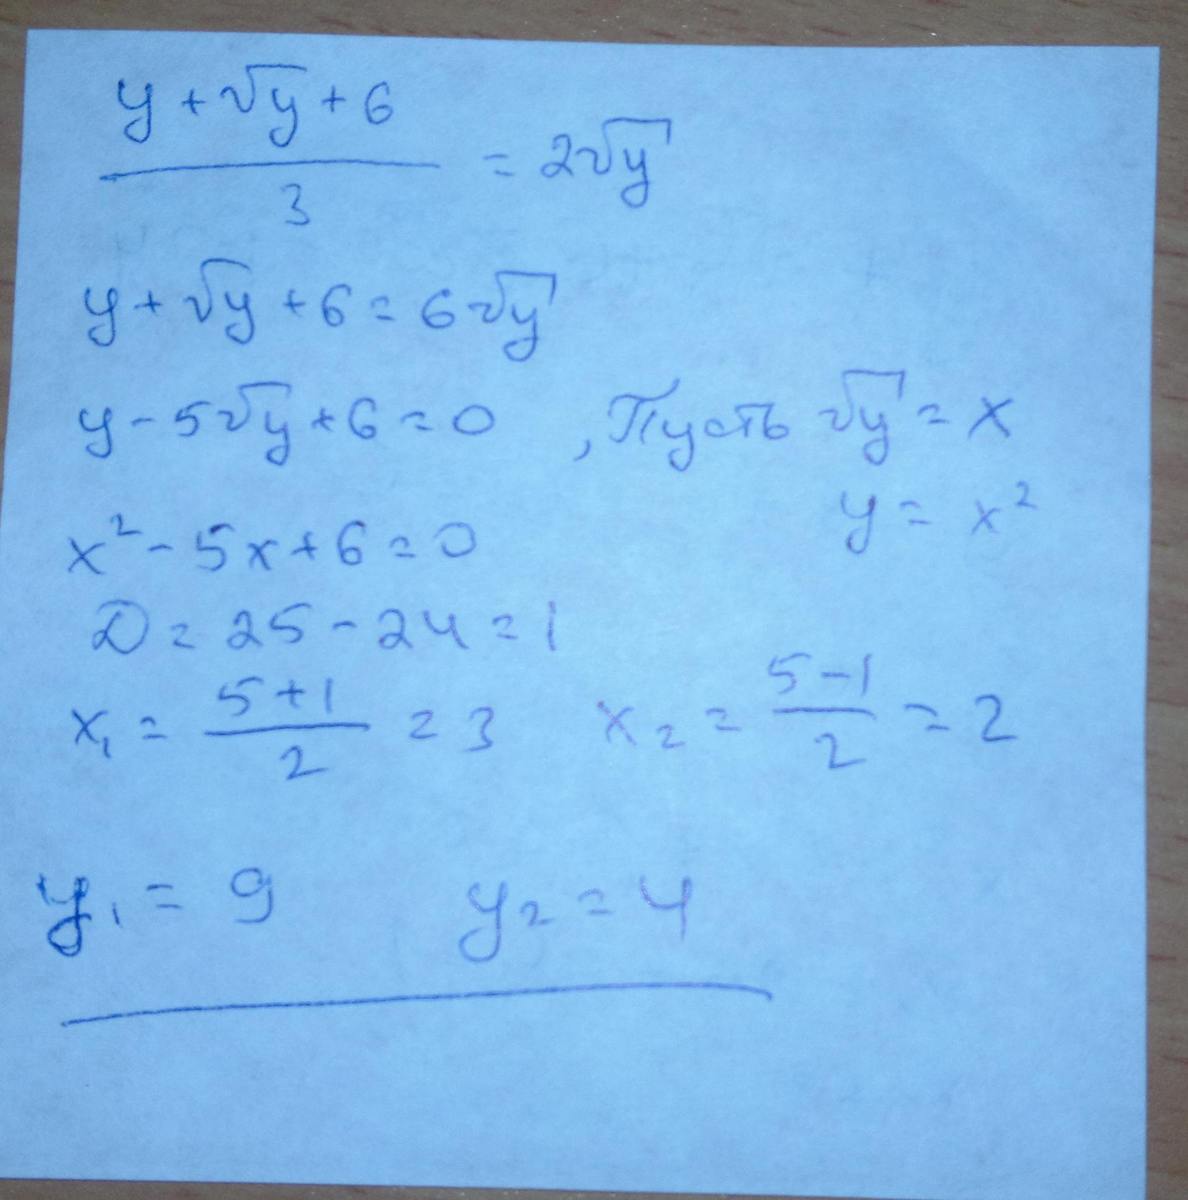 y + √y + 6
—————— = 2√y
3
y + √y + 6 = 6√y
y - 5√y + 6 = 0 , Пусть √y = x
y = x²
x² - 5x + 6 = 0
D = 25 - 24 = 1
x₁ = (5+1)/2 = 3 x₂ = (5-1)/2 = 2
y₁ = 9 y₂ = 4